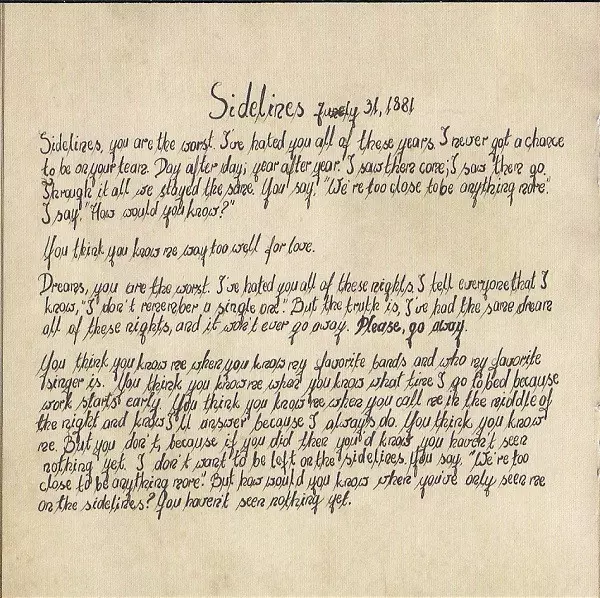 Sidelines Junely 31, 1881
Sidelines, you are the worst. I've hated you all of these years. I never got a chance
to be on your team. Day after day; year after year. I saw them come; I saw them go.
Through it all we stayed the same. You say: "We're too close to be anything more."
I say: "How would you know?"
You think you know me way too well for love.
Dreams, you are the worst. I've hated you all of these nights. I tell everyone that I
know, "I don't remember a single one." But the truth is, I've had the same dream
all of these nights, and it won't ever go away. Please, go away.
You think you know me when you know my favorite bands and who my favorite
singer is. You think you know me when you know what time I go to bed because
work starts early. You think you know me when you call me in the middle of
the night and know I'll answer because I always do. You think you know
me. But you don't, because if you did then you'd know you haven't seen
nothing yet. I don't want to be left on the sidelines. You say: "We're too
close to be anything more." But how would you know when you've only seen me
on the sidelines? You haven't seen nothing yet.